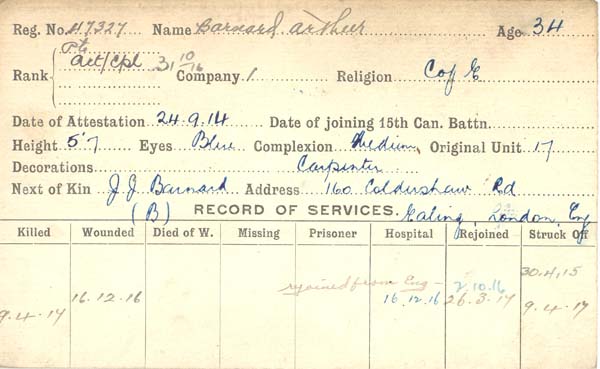 Reg. No. 47327 Name Barnard Arthur Age 34
Pte
Rank Act/Cpl 31/10/16 Company 1 Religion C of E
Date of Attestation 24.9.14 Date of joining 15th Can. Battn.
Height 5'7 Eyes Blue Complexion Medium Original Unit 17
Decorations Carpenter
Next of Kin J J Barnard Address 160 Coldershaw Rd
(B) RECORD OF SERVICES. Ealing London Eng
Killed Wounded Died of W. Missing Prisoner Hospital Rejoined Struck Off
30.4.15
rejoined from Eng - 2.10.16
16.12.16 16.12.16 26.3.17
9.4.17 9.4.17